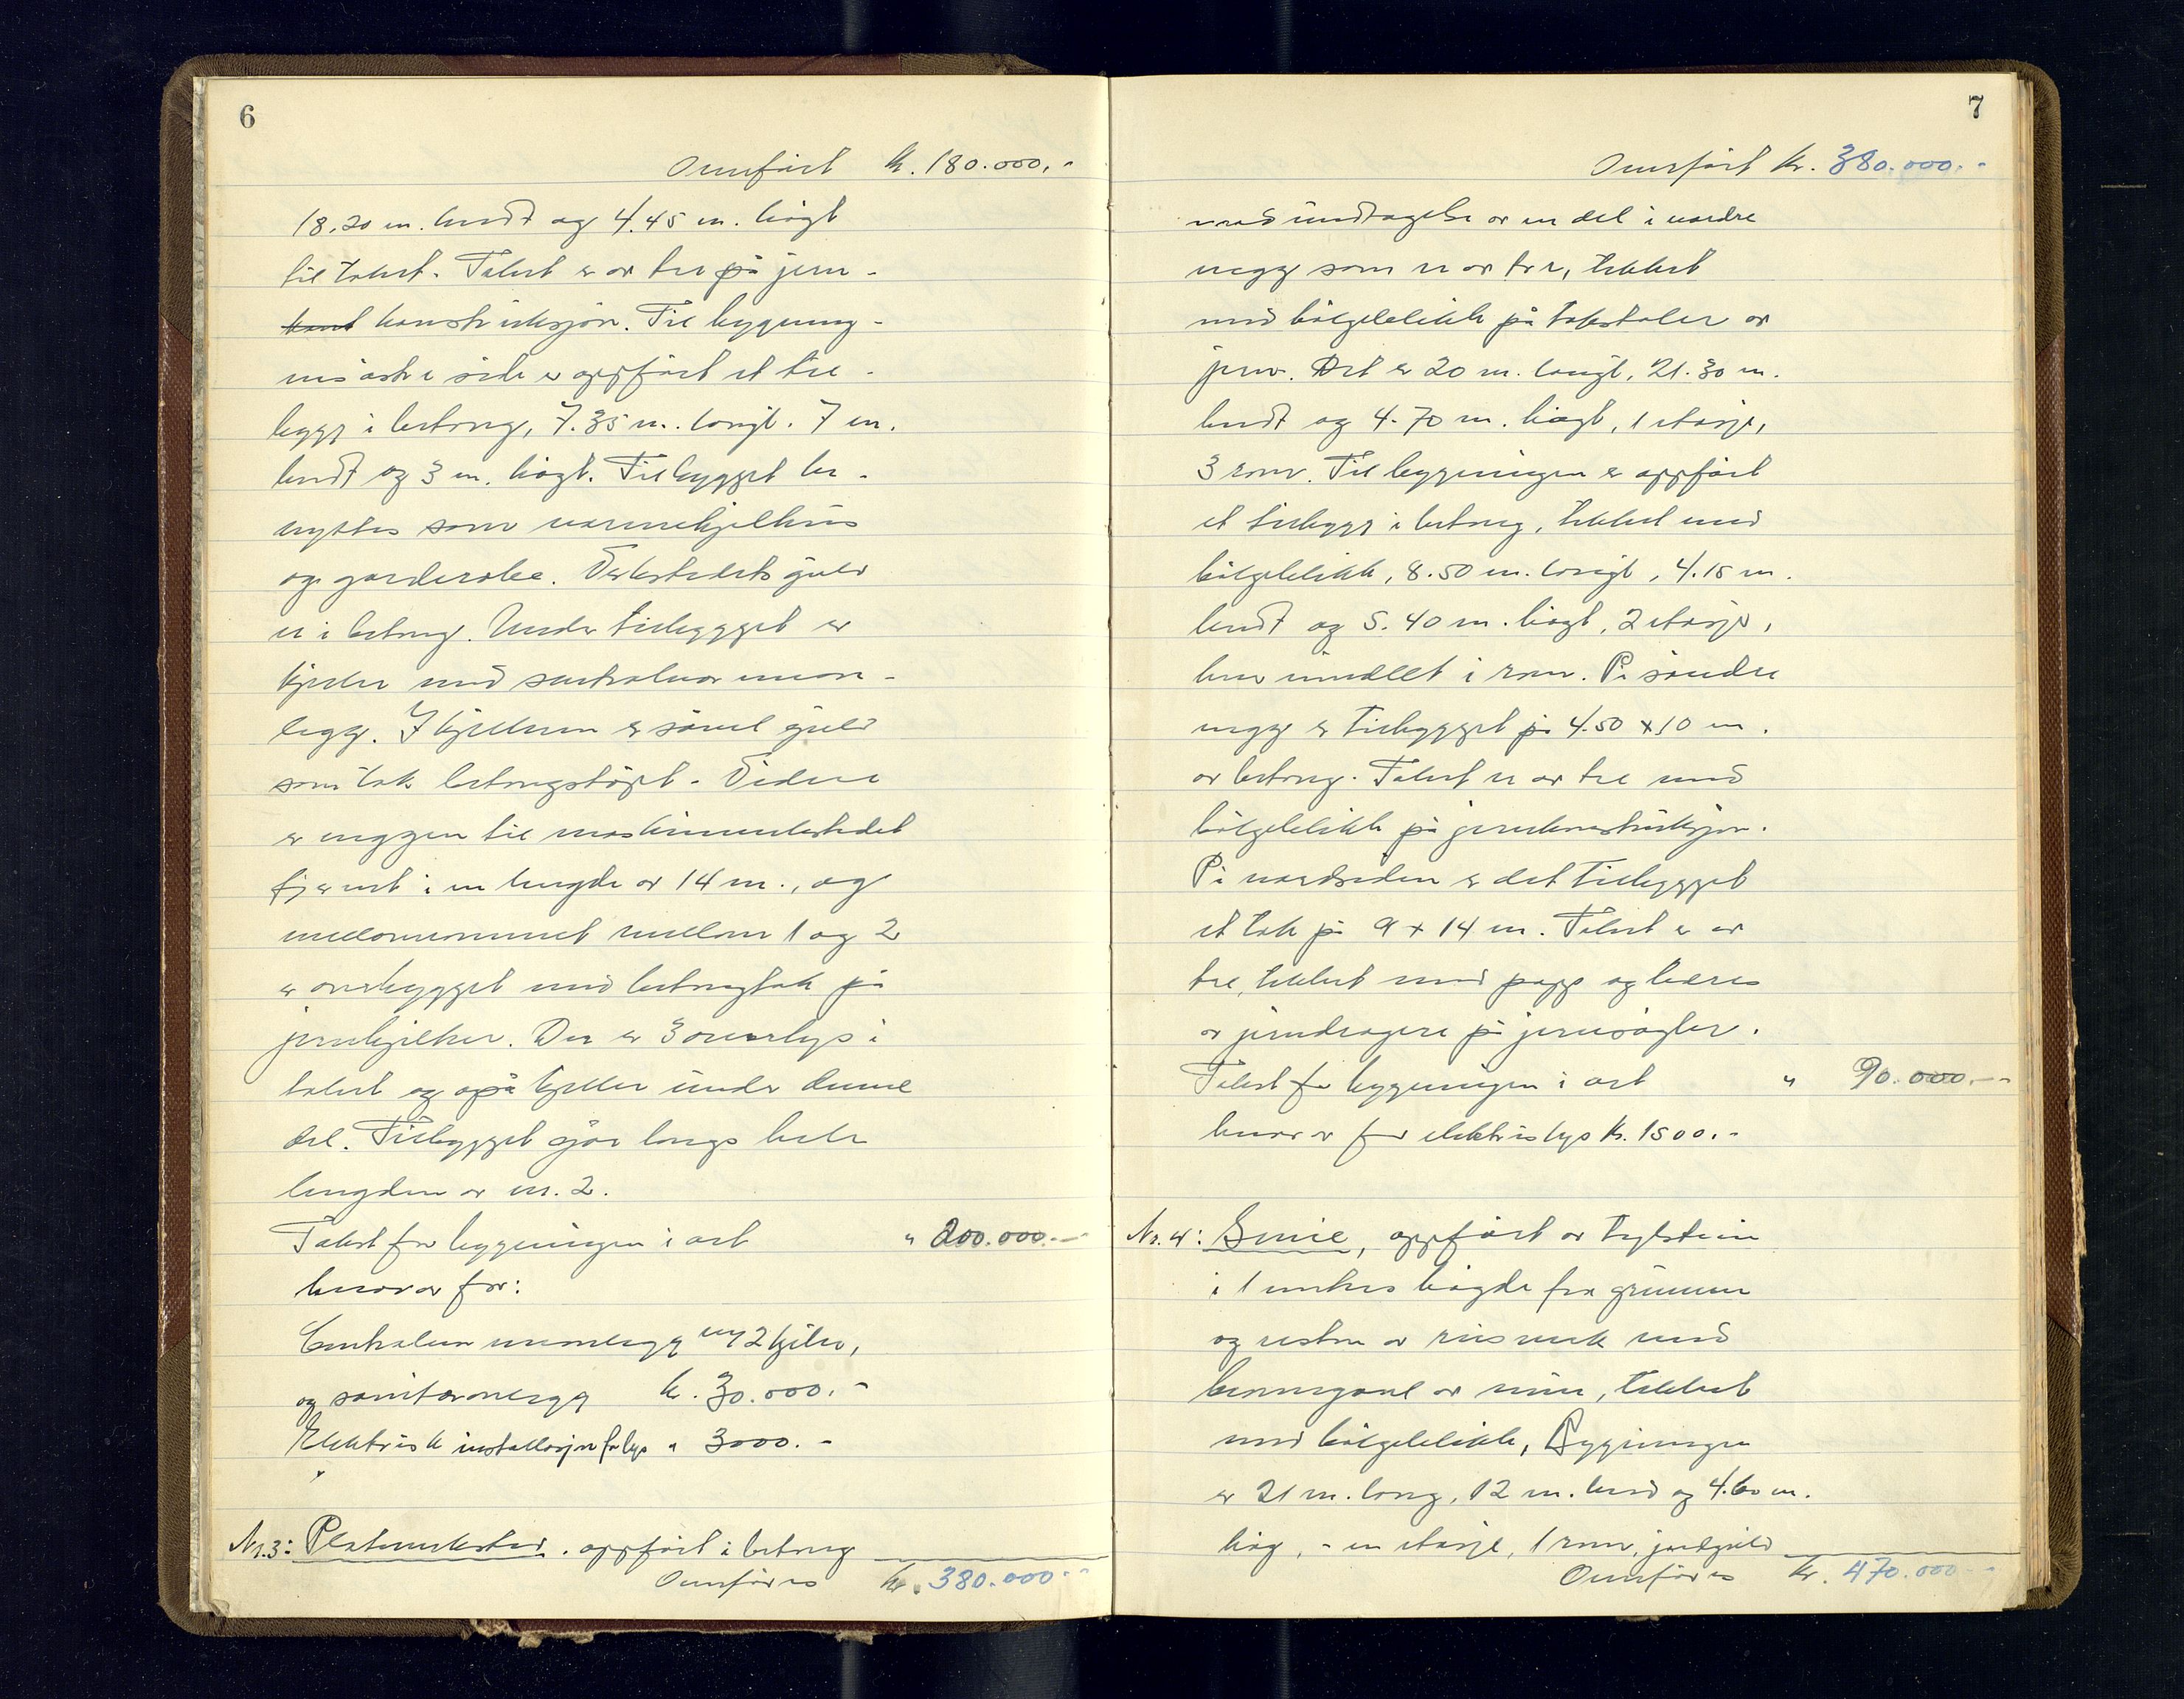 6
Overført kr. 180.000,-
18.20 m. bredt og 4.45 m. høgt
til taket. Taket er av tre på jern-
konst konstruksjon. Til bygning-
ens østre side er oppført et til-
bygg i betong, 7.35 m. langt. 7 m.
bredt og 3 m. høgt. Tilbygget be-
nyttes som varmekjelhus
og garderobe. Verkstedets gulv
er i betong. Under tilbygget er
kjeller med sentralvarmean-
legg. I kjelleren er såvel gulv
som tak betongstøpt. Videre
er veggen til maskinverkstedet
fjernet i en lengde av 14 m., og
mellomrommet mellom 1 og 2
er overbygget med betongtak på
jernbjelker. Der er 3 overlys i
taket og også kjeller under denne
del. Tilbygget går langs hele
lengden av nr. 2.
Takst for bygningen i alt " 200.000.-
herav for:
Centralvarmeanlegg m/2 kjeler,
og sanitæranlegg kr. 30.000.-
Elektrisk installasjon for lys " 3000.-
Nr. 3: Plateverksted. oppført i betong
Overføres kr. 380.000.-
7
Overført kr. 380.000.-
med undtagelse av en del i nordre
vegg som er av tre, tekket
med bølgeblikk på takstoler av
jern. Det er 20 m. langt, 21.30 m.
bredt og 4.70 m. høgt, 1 etasje,
3 rom. Til bygningen er oppført
et tilbygg i betong, tekket med
bølgeblikk, 8.50 m. langt, 4.15 m.
bredt og 5.40 m. høgt, 2 etasjes,
hver inndelt i rom. På søndre
vegg er tilbygget på 4.50 x 10 m.
av betong. Taket er av tre med
bølgeblikk på jernkonstruksjon.
På nordsiden er det tilbygget
et tak på 9 x 14 m. Taket er av
tre, tekket med papp og bæres
av jerndragere på jernsøyler.
Takst for bygningen i alt " 90.000.-
herav for elektris lys kr. 1500.-
Nr. 4: Smie, oppført av teglstein
i 1 meters høgde fra grunnen
og resten av reisverk med
branngavl av mur, tekket
med bølgeblikk, Bygningen
er 21 m. lang, 12 m. bred og 4.60 m.
høg, - en etasje, 1 rom, jordgulv
Overføres kr. 470.000.-